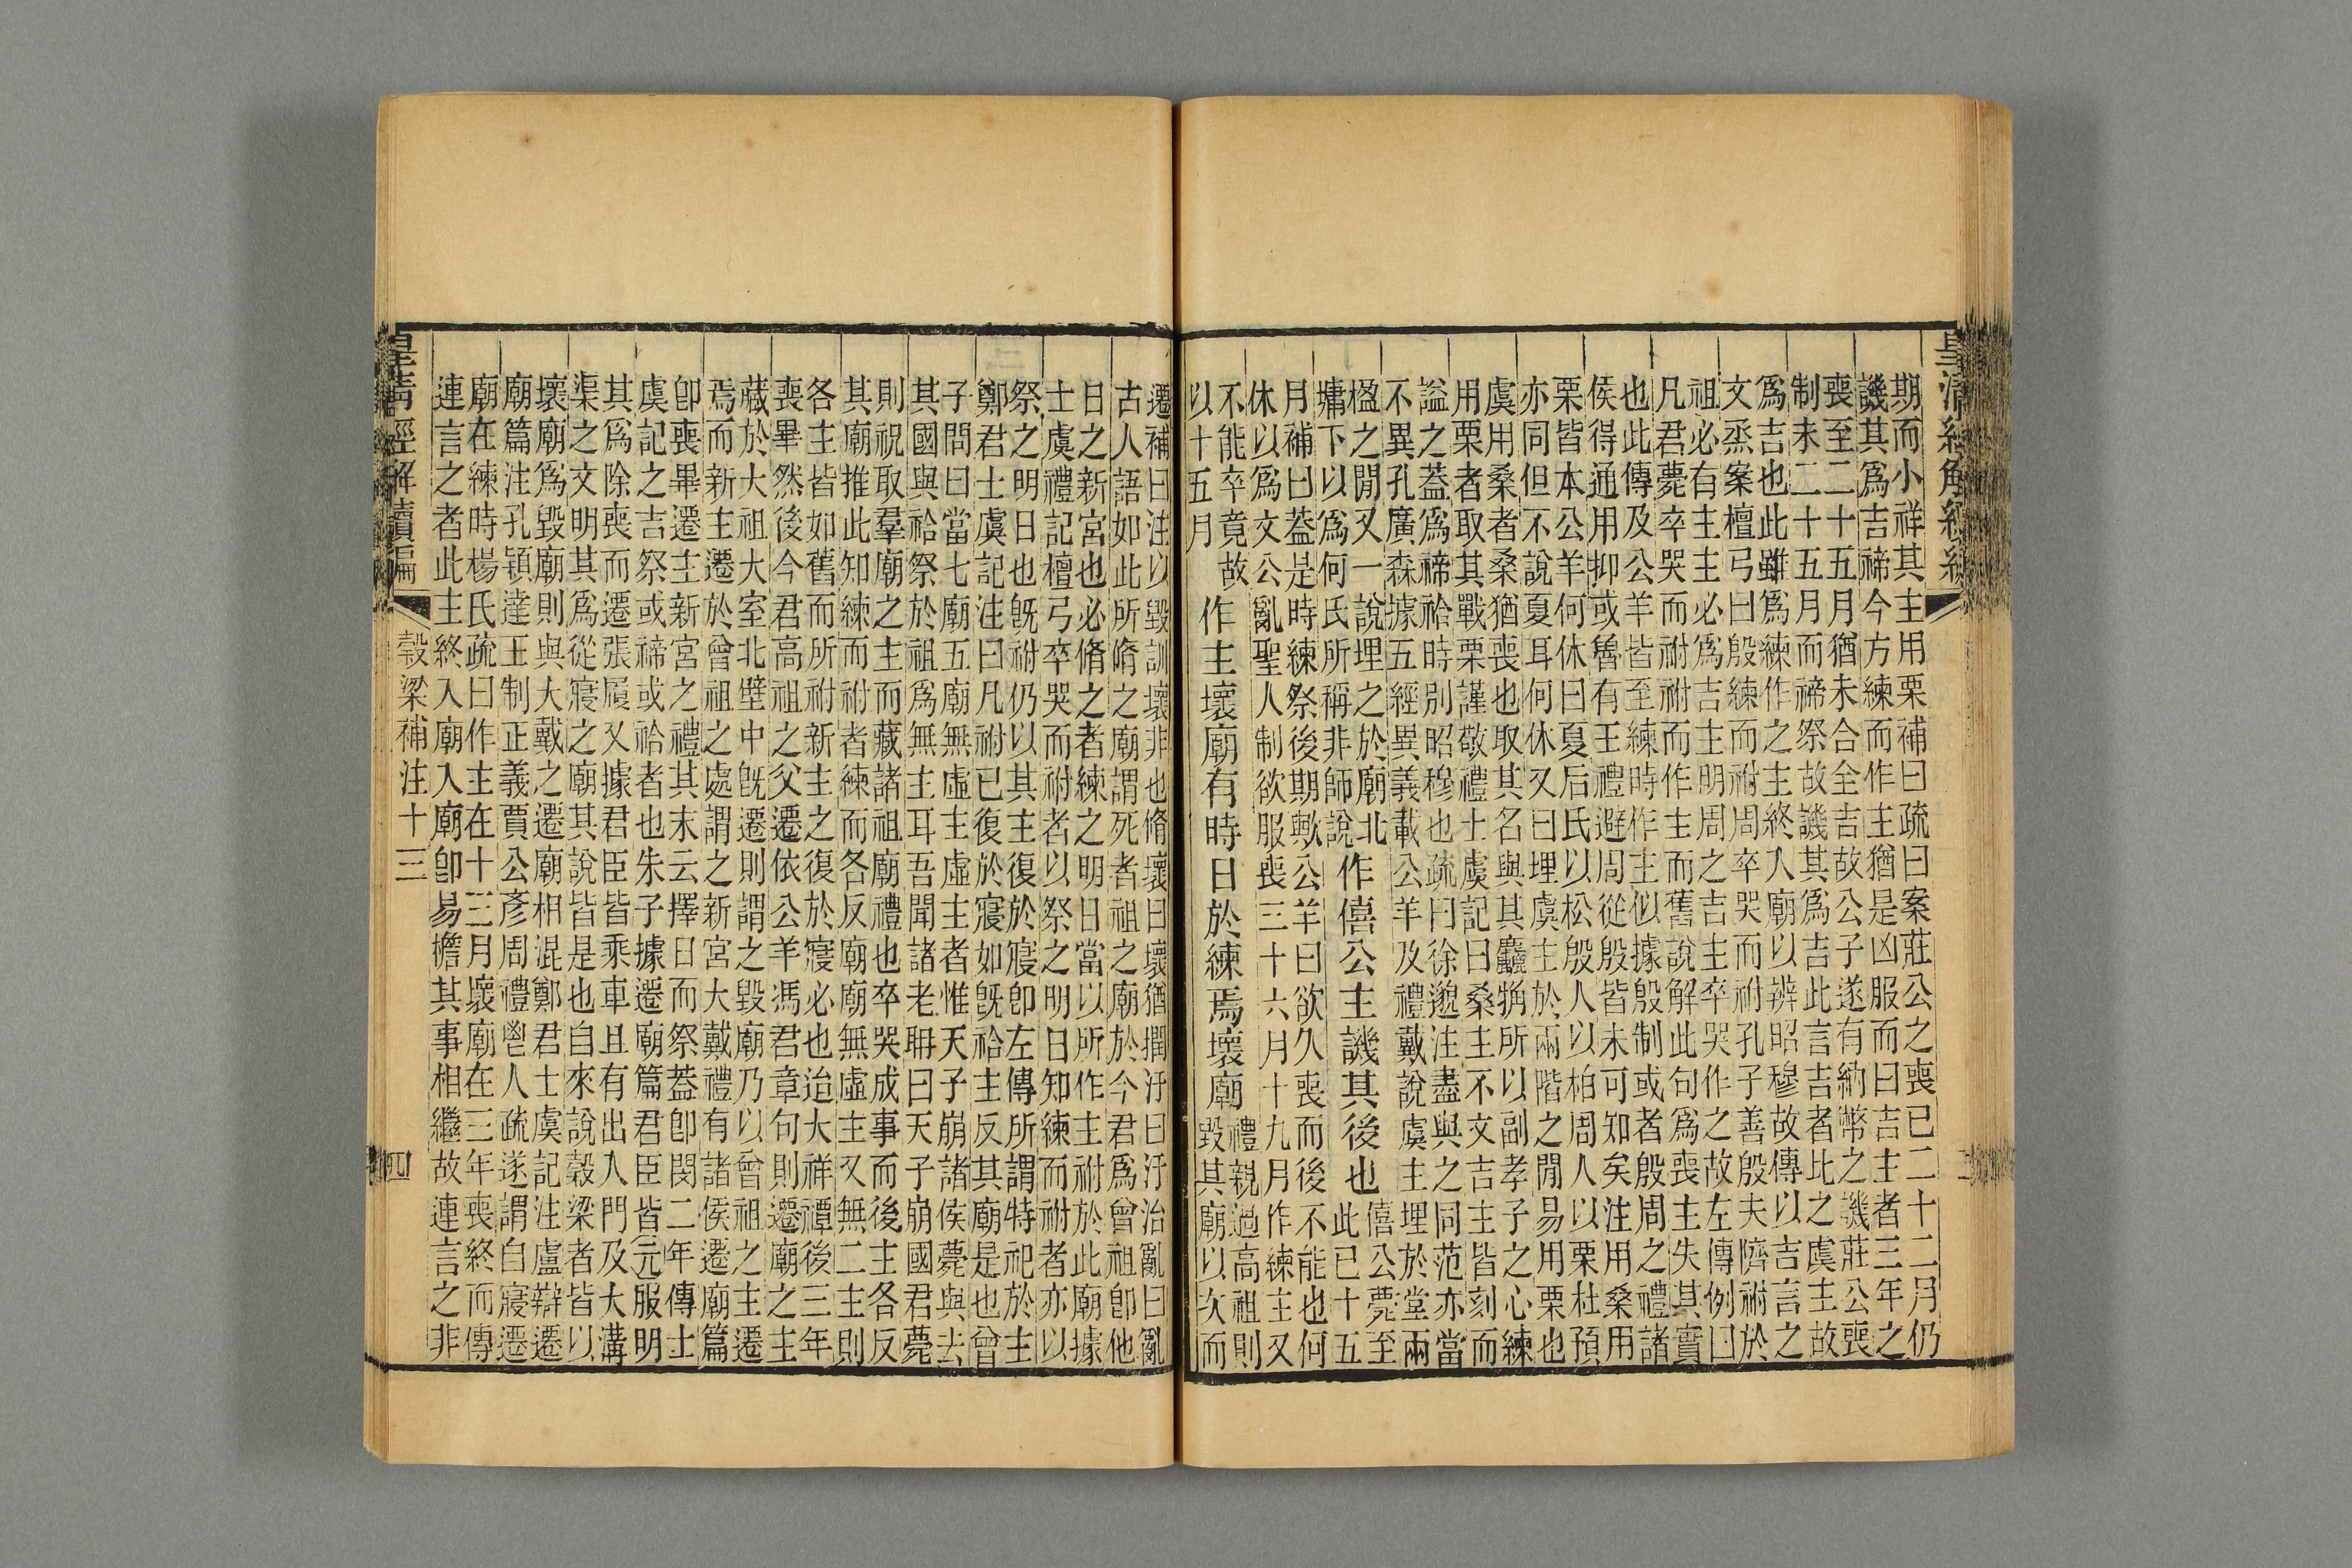 皇清經解續編
期而小祥其主用栗補曰疏曰案莊公之喪已二十二月仍
譏其爲吉禘今方練而作主猶是凶服而曰吉主者三年之
喪至二十五月猶未合全吉故公子遂有納幣之譏莊公喪
制未二十五月而禘祭故譏其爲吉此言吉者比之虞主故
爲吉也此雖爲練作之主終入廟以辨昭穆故傳以吉言之
文烝案檀弓曰殷練而祔周卒哭而祔孔子善殷夫隮祔於
祖必有主主必爲吉主明周之吉主卒哭作之故左傳例曰
凡君薨卒哭而祔祔而作主而舊說解此句爲喪主失其實
也此傳及公羊皆至練時作主似據殷制或者殷周之禮諸
侯得通用抑或魯有王禮避周從殷皆未可知矣注用桑用
栗皆本公羊何休曰夏后氏以松殷人以柏周人以栗杜預
亦同但不說夏耳何休又曰埋虞主於兩階之閒易用栗也
虞用桑者桑猶喪也取其名與其麤觕所以副孝子之心練
用栗者取其戰栗謹敬禮士虞記曰桑主不文吉主皆刻而
謚之蓋爲禘祫時別昭穆也疏曰徐邈注盡與之同范亦當
不異孔廣森據五經異義載公羊及禮戴說虞主埋於堂兩
楹之閒又一說埋之於廟北
墉下以爲何氏所稱非師說
作僖公主譏其後也
僖公薨至
此已十五
月補曰蓋是時練祭後期歟公羊曰欲久喪而後不能也何
休以爲文公亂聖人制欲服喪三十六月十九月作練主又
不能卒竟故
以十五月
作主壞廟有時日於練焉壞廟
禮親過高祖則
毀其廟以次而
遷補曰注以毀訓壞非也脩壞曰壞猶撋汙曰汙治亂曰亂
古人語如此所脩之廟謂死者祖之廟於今君爲曾祖卽他
日之新宮也必脩之者練之明日當以所作主祔於此廟據
士虞禮記檀弓卒哭而祔者以祭之明日知練而祔者亦以
祭之明日也旣祔仍以其主復於寢卽左傳所謂特祀於主
鄭君士虞記注曰凡祔已復於寢如旣祫主反其廟是也曾
子問曰當七廟五廟無虛主虛主者惟天子崩諸侯薨與去
其國與祫祭於祖爲無主耳吾聞諸老聃曰天子崩國君薨
則祝取羣廟之主而藏諸祖廟禮也卒哭成事而後主各反
其廟推此知練而祔者練而各反廟廟無虛主又無二主則
各主皆如舊而所祔新主之復於寢必也迨大祥禫後三年
喪畢然後今君高祖之父遷依公羊馮君章句則遷廟之主
藏於大祖大室北壁中旣遷則謂之毀廟乃以曾祖之主遷
焉而新主遷於曾祖之處謂之新宮大戴禮有諸侯遷廟篇
卽喪畢遷主新宮之禮其末云擇日而祭蓋卽閔二年傳士
虞記之吉祭或禘或祫者也朱子據遷廟篇君臣皆元服明
其爲除喪而遷張履又據君臣皆乘車且有出入門及大溝
渠之文明其爲從寢之廟其說皆是也自來說穀梁者皆以
壞廟爲毀廟則與大戴之遷廟相混鄭君士虞記注盧辯遷
廟篇注孔穎達王制正義賈公彥周禮鬯人疏遂謂自寢遷
廟在練時楊氏疏曰作主在十三月壞廟在三年喪終而傳
連言之者此主終入廟入廟卽易檐其事相繼故連言之非
皇清經解續編
穀梁補注十三
四